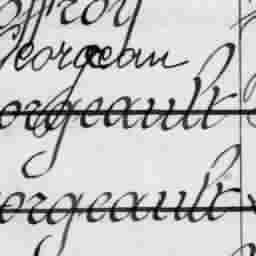 offroy
Georgean
orgeault
orgeault